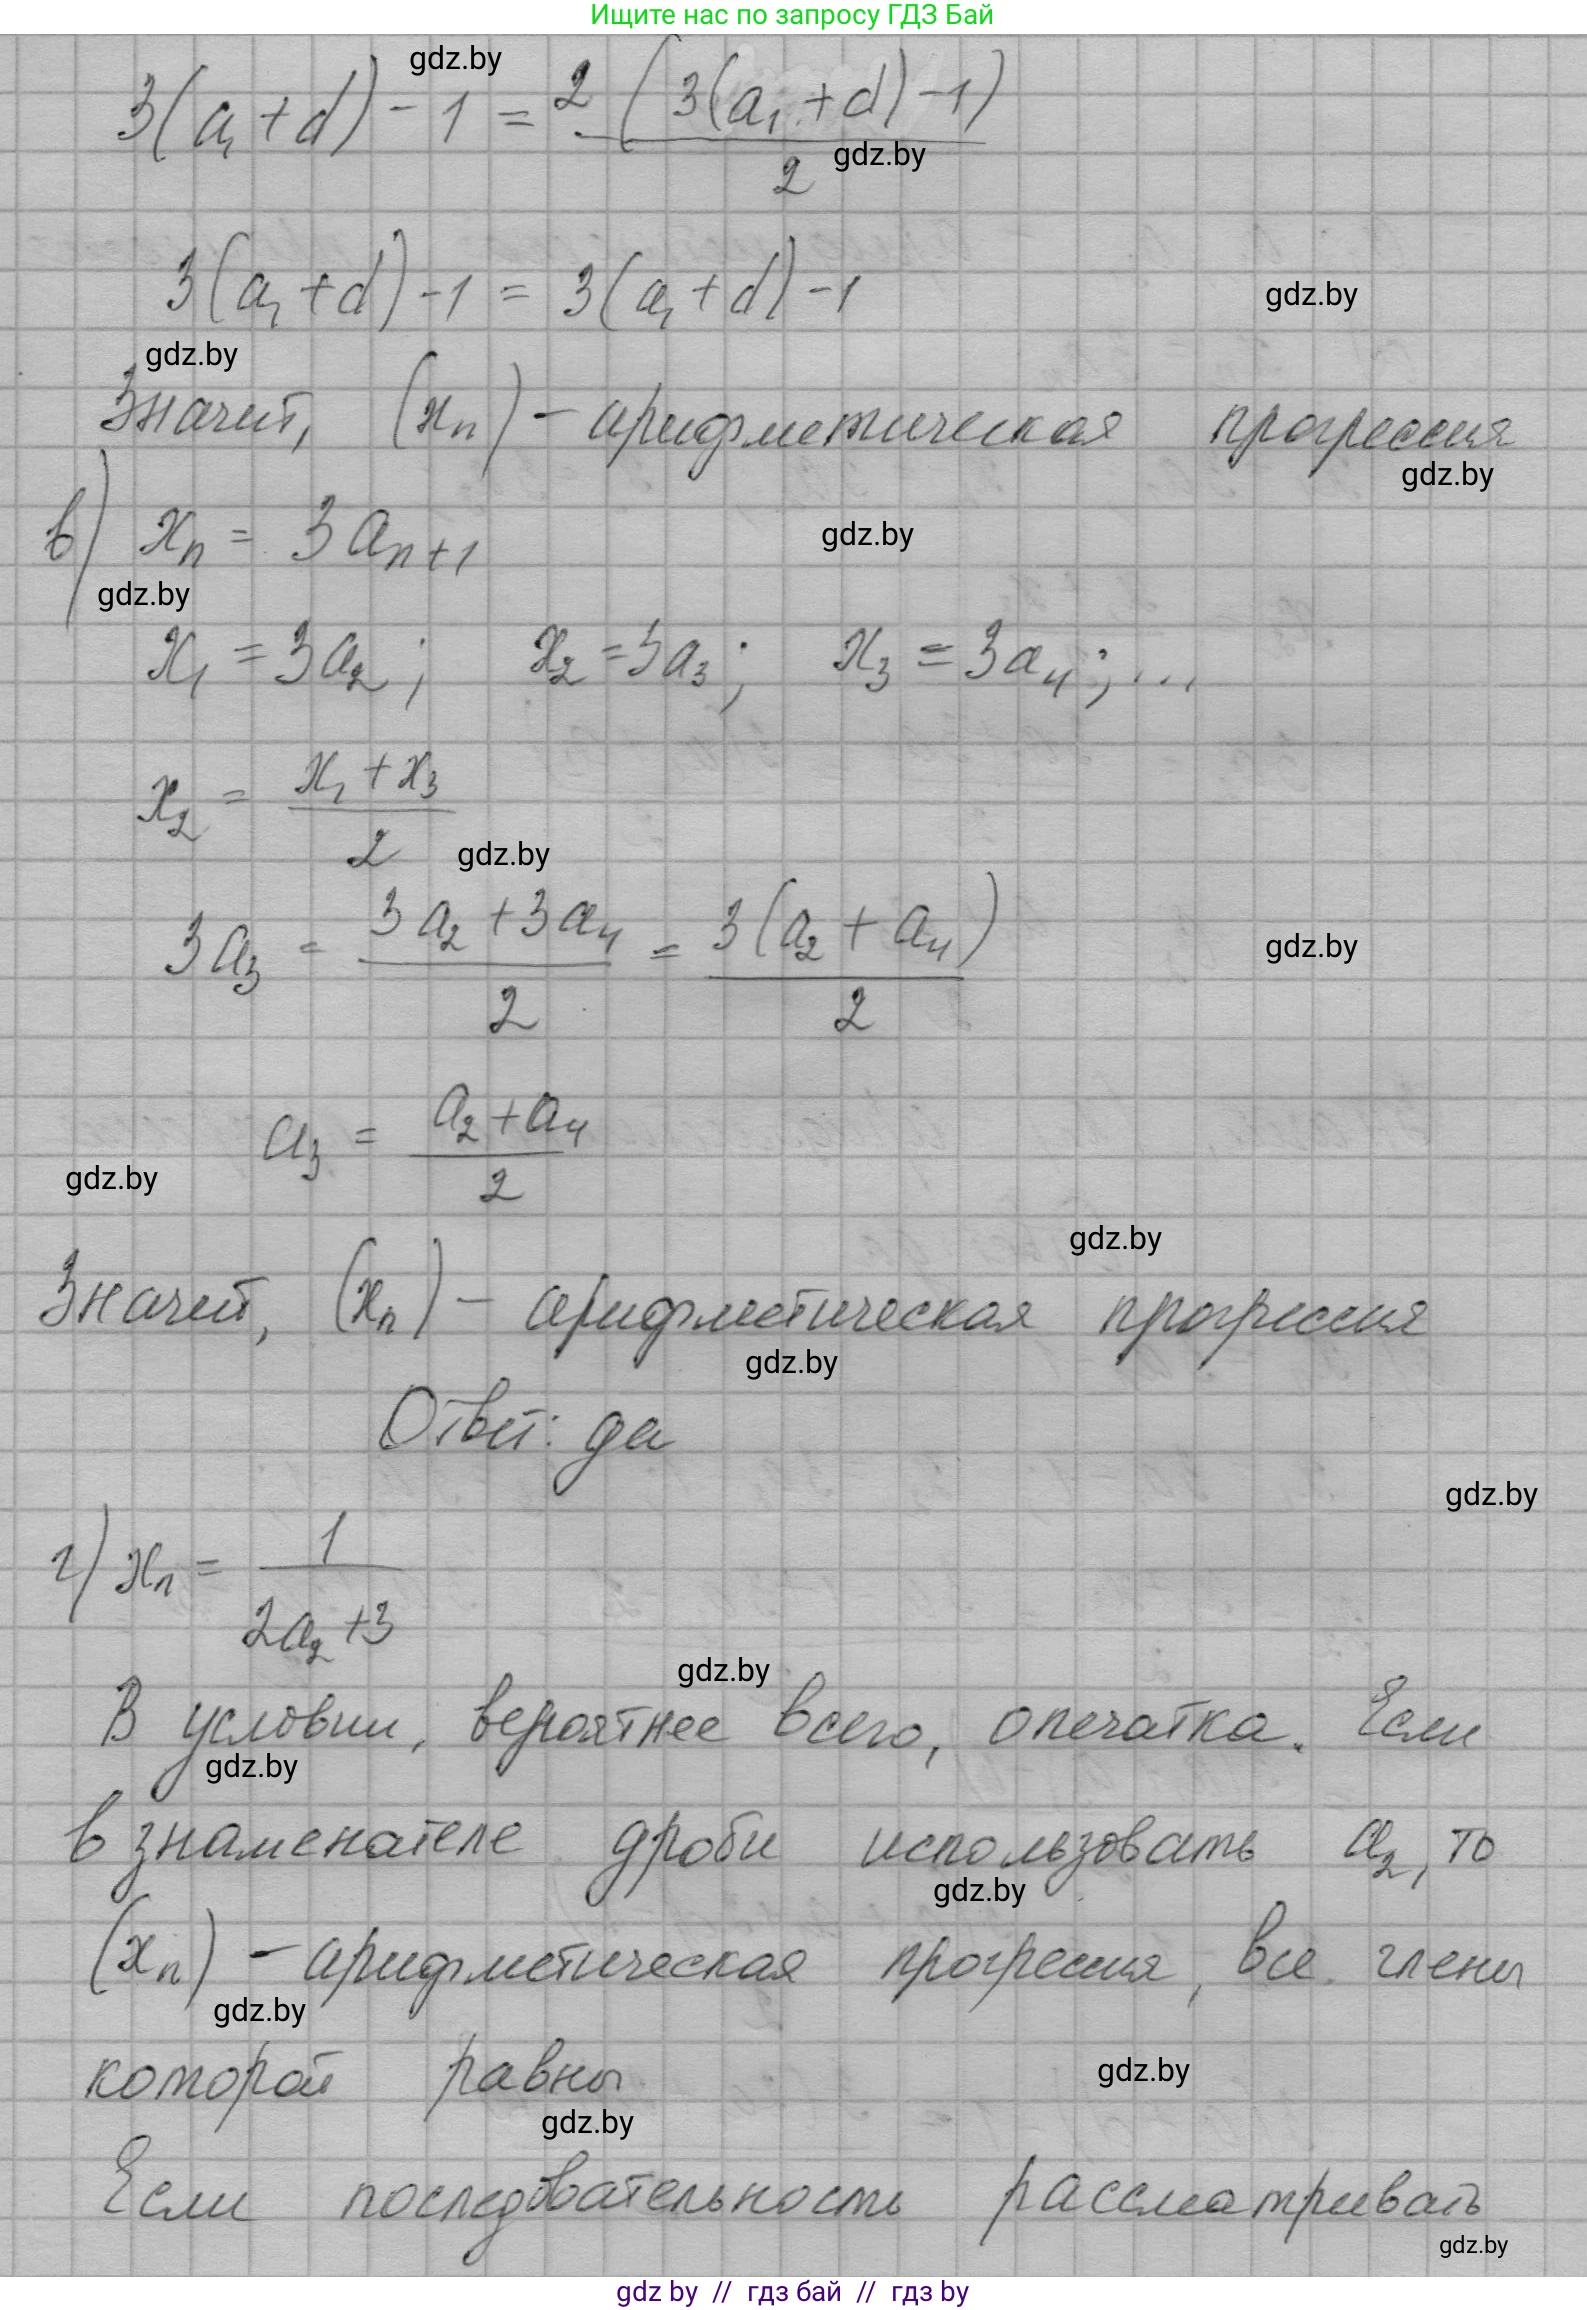 Ищите нас по запросу ГДЗ Бай
gdz.by
3(a₁+d)-1 = 2(3(a₁+d)-1)/2
gdz.by
3(a₁+d)-1 = 3(a₁+d)-1
gdz.by
gdz.by
Значит, (xₙ) - арифметическая прогрессия
gdz.by
в) xₙ = 3aₙ₊₁
gdz.by
gdz.by
x₁ = 3a₂; x₂ = 3a₃; x₃ = 3a₄; ...
x₂ = (x₁+x₃)/2
gdz.by
3a₃ = (3a₂+3a₄)/2 = 3(a₂+a₄)/2
gdz.by
a₃ = (a₂+a₄)/2
gdz.by
gdz.by
Значит, (xₙ) - арифметическая прогрессия
gdz.by
Ответ: да
gdz.by
г) xₙ = 1/(2a₂+3)
gdz.by
В условии, вероятнее всего, опечатка. Если
gdz.by
в знаменателе дроби использовать a₂, то
gdz.by
(xₙ) - арифметическая прогрессия, все члены
gdz.by
которой равны
gdz.by
gdz.by
Если последовательность рассматривать
gdz.by
gdz by // гдз бай // гдз by